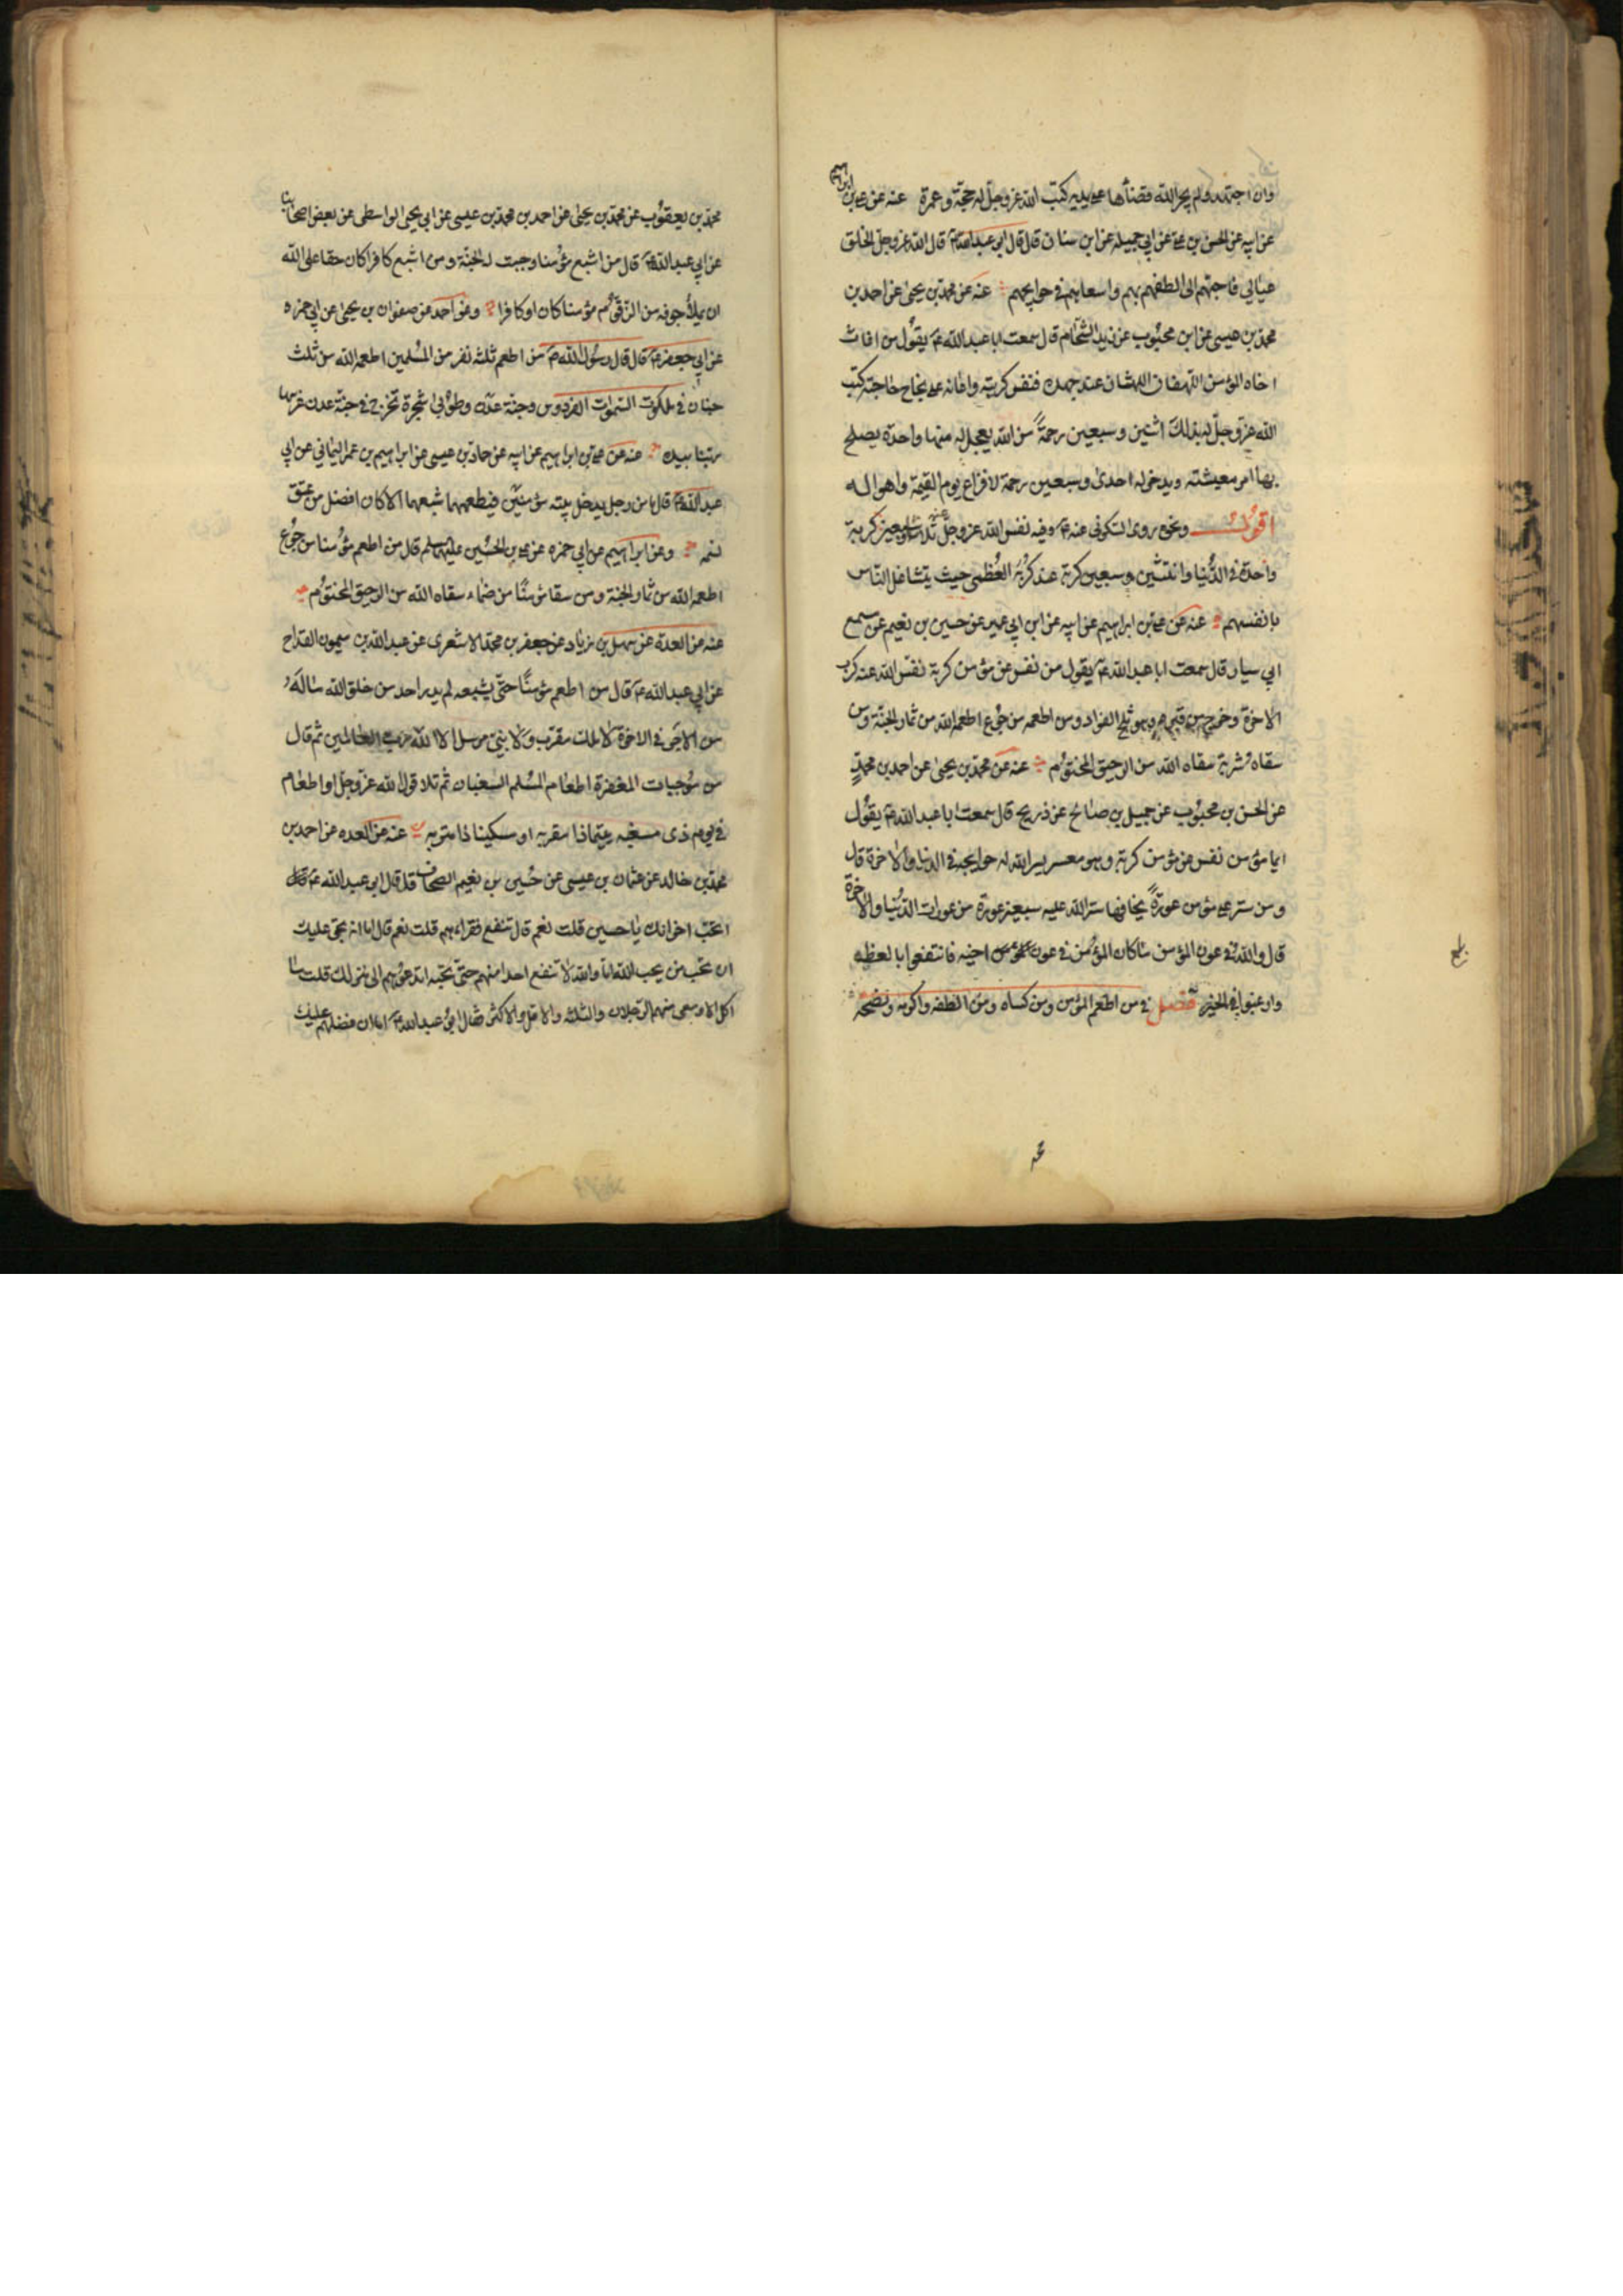 وان اجتهد ولم يجر الله قضائها على يديه كتب الله عز وجل له حجة وعمرة عنه عن علي بن ابراهيم
عن ابيه عن الحسن بن علي عن ابي جميله عن ابن سنان قال قال ابي عبد الله ع قال الله عز وجل الخلق
عيالي فاحبهم الى الطفهم بهم واسعاهم في حوايجهم عنه عن محمد بن يحيى عن احمد بن
محمد بن عيسى عن ابن محبوب عن زيد الشحام قال سمعت ابا عبد الله ع يقول من اغاث
اخاه المؤمن اللهفان اللهثان عند جهده فنفس كربته واعانه على نجاح حاجته كتب
الله عز وجل له بذلك اثنين وسبعين رحمة من الله يعجل له منها واحدة يصلح
بها امر معيشته ويدخر له احدى وسبعين رحمة لافزاع يوم القيمة واهواله
اقول ونحوه روى السكوني عنه ع وفيه نفس الله عز وجل عنه ثلاثا وسبعين كربة
واحدة في الدنيا واثنتين وسبعين كربة عند كربه العظمى حيث يتشاغل الناس
بانفسهم عنه عن علي بن ابراهيم عن ابيه عن ابن ابي عمير عن حسين بن نعيم عن مسمع
ابي سيار قال سمعت ابا عبد الله ع يقول من نفس عن مؤمن كربة نفس الله عنه كرب
الاخرة وخرج من قبره وهو ثلج الفؤاد ومن اطعمه من جوع اطعمه الله من ثمار الجنة ومن
سقاه شربة سقاه الله من الرحيق المختوم عنه عن محمد بن يحيى عن احمد بن محمد
عن الحسن بن محبوب عن جميل بن صالح عن ذريح قال سمعت ابا عبد الله ع يقول
ايما مؤمن نفس عن مؤمن كربة وهو معسر يسر الله له حوايجه في الدنيا والاخرة قال
ومن ستر على مؤمن عورة يخافها ستر الله عليه سبعين عورة من عورات الدنيا والاخرة
قال والله في عون المؤمن ما كان المؤمن في عون اخيه فانتفعوا بالعظه
وارغبوا في الخير فصل في من اطعم المؤمن ومن كساه ومن الطفه واكرمه ونصحه
محمد بن يعقوب عن محمد بن يحيى عن احمد بن محمد بن عيسى عن ابي يحيى الواسطى عن بعض اصحابنا
عن ابي عبد الله ع قال من اشبع مؤمنا وجبت له الجنة ومن اشبع كافرا كان حقا على الله
ان يملأ جوفه من الزقوم مؤمنا كان او كافرا وعن احمد عن صفوان بن يحيى عن ابي حمزه
عن ابي جعفر ع قال قال رسول الله ص من اطعم ثلثه نفر من المسلمين اطعمه الله من ثلث
جنان في ملكوت السموات الفردوس وجنة عدن وطوبى شجرة تخرج في جنة عدن غرسها
ربنا بيده عنه عن علي بن ابراهيم عن ابيه عن حماد بن عيسى عن ابراهيم بن عمر اليماني عن ابي
عبد الله ع قال ما من رجل يدخل بيته مؤمنين فيطعمهما شبعهما الا كان افضل من عتق
نسمه وعن ابراهيم عن ابي حمزه عن علي بن الحسين عليهما سلم قال من اطعم مؤمنا من جوع
اطعمه الله من ثمار الجنة ومن سقا مؤمنا من ضماء سقاه الله من الرحيق المختوم
عنه عن العدة عن سهل بن زياد عن جعفر بن محمد الاشعرى عن عبد الله بن ميمون القداح
عن ابي عبد الله ع قال من اطعم مؤمنا حتى يشبعه لم يدر احد من خلق الله ما له
من الاجر في الاخرة لا ملك مقرب ولا نبي مرسل الا الله رب العالمين ثم قال
من موجبات المغفرة اطعام المسلم السغبان ثم تلا قول الله عز وجل او اطعام
في يوم ذى مسغبه يتيما ذا مقربه او مسكينا ذا متربه عنه عن العده عن احمد بن
محمد بن خالد عن عثمان بن عيسى عن حسين بن نعيم الصحاف قال قال ابي عبد الله ع
اتحب اخوانك يا حسين قلت نعم قال تنفع فقراءهم قلت نعم قال اما انه يحق عليك
ان تحب من يحب الله اما والله لا تنفع احدا منهم حتى تحبه اتدعوهم الى منزلك قلت ما
اكل الا ومعى منهم الرجلان والثلثه والاقل والاكثر فقال ابي عبد الله ع اما ان فضلهم عليك